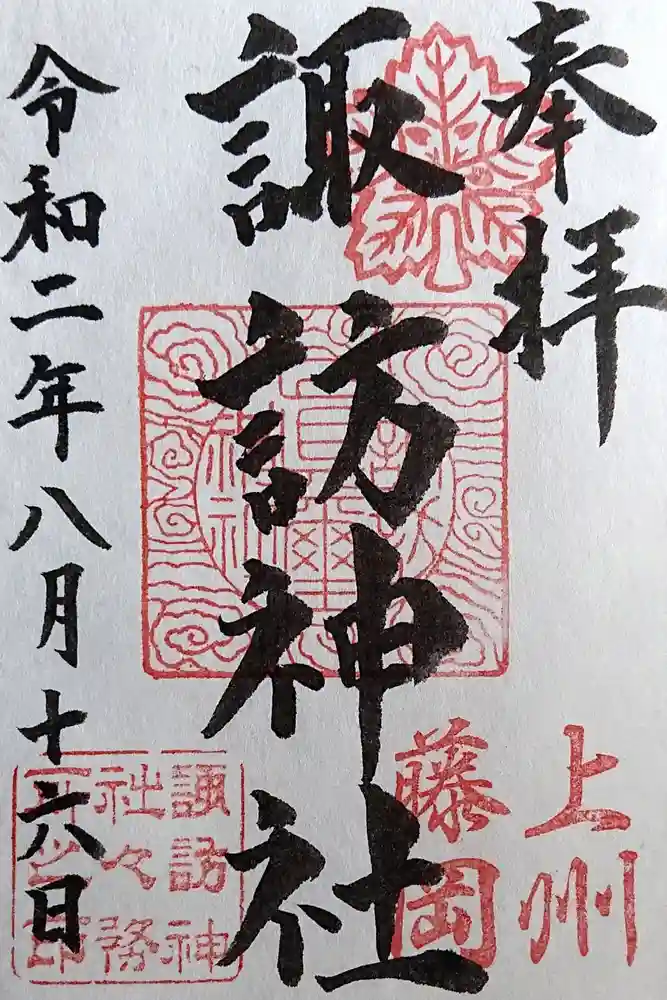 奉拝
上州
藤岡
諏訪神社
令和二年八月十六日
諏訪神
社々務
所之印